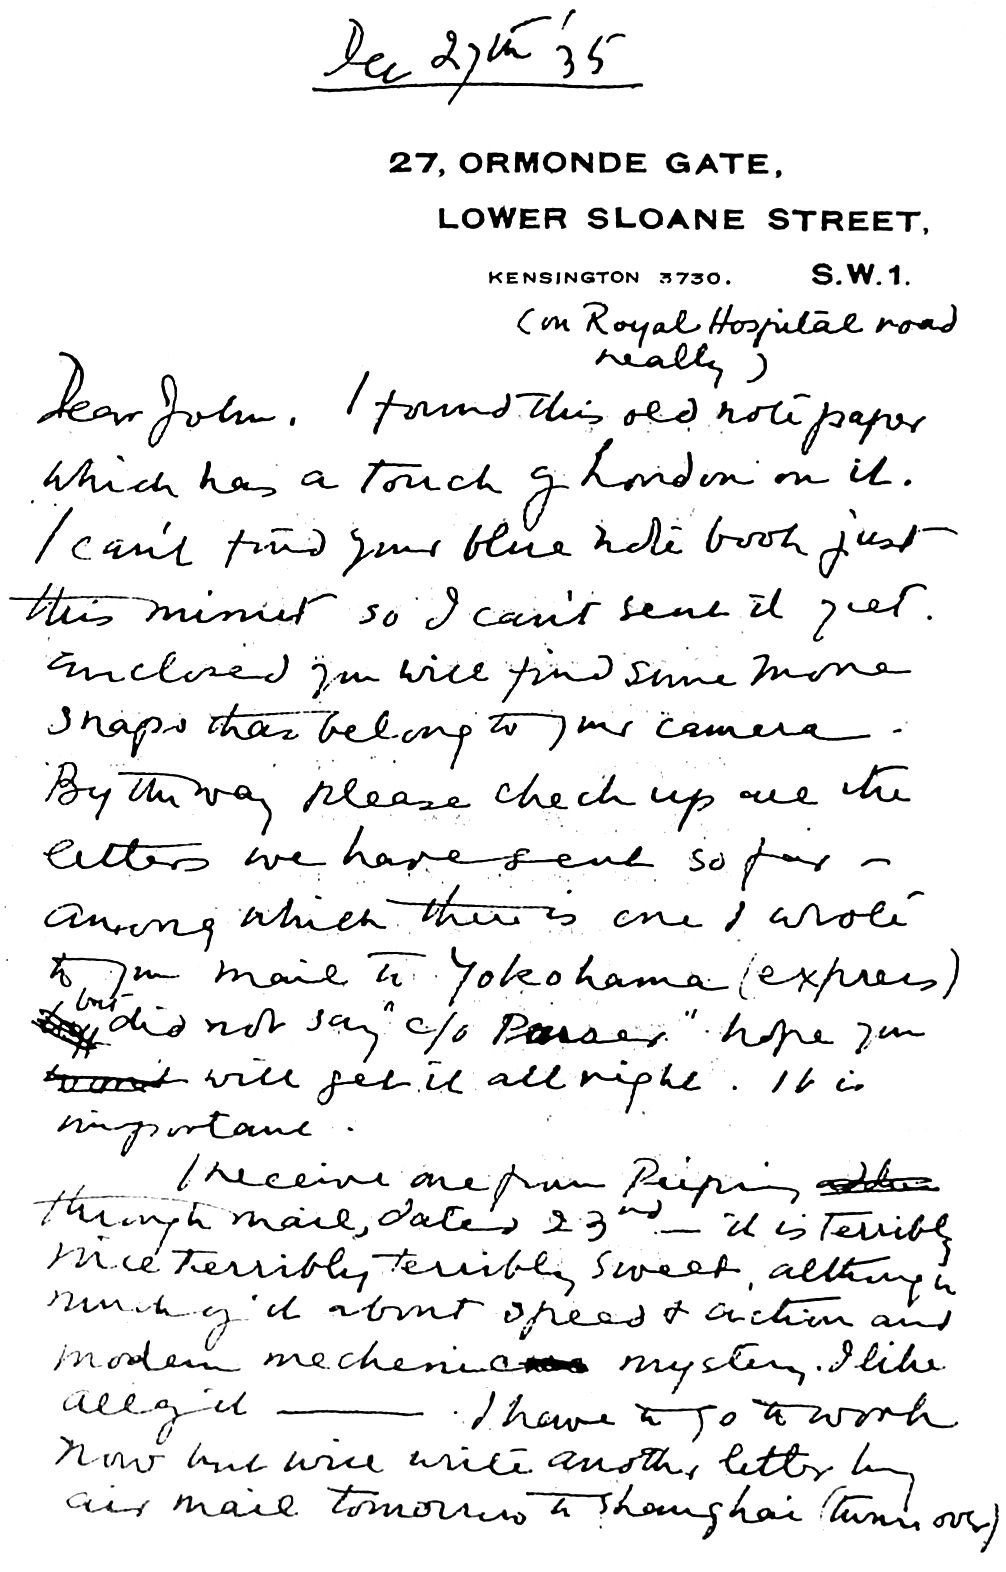 Dec 27th '35
27, ORMONDE GATE,
LOWER SLOANE STREET,
KENSINGTON 3730. S.W.1.
(on Royal Hospital road
really)
Dear John. I found this old note paper
which has a touch of London on it.
I can't find your blue note book just
this minut so I can't sent it yet.
Enclosed you will find some more
snaps that belong to your camera.
By the way please check up all the
letters we have sent so far –
among which there is one I wrote
to you mail to Yokohama (express)
but did not say "c/o Purser" hope you
will get it all right. It is
important.
I receive one from Peiping
through mail, dated 23rd – it is terribly
nice terribly terribly sweet, although
much of it about speed & action and
modern mechenic mystery. I like
all of it — I have to go to work
now but will write another letter by
air mail tomorrow to Shanghai (turn over)